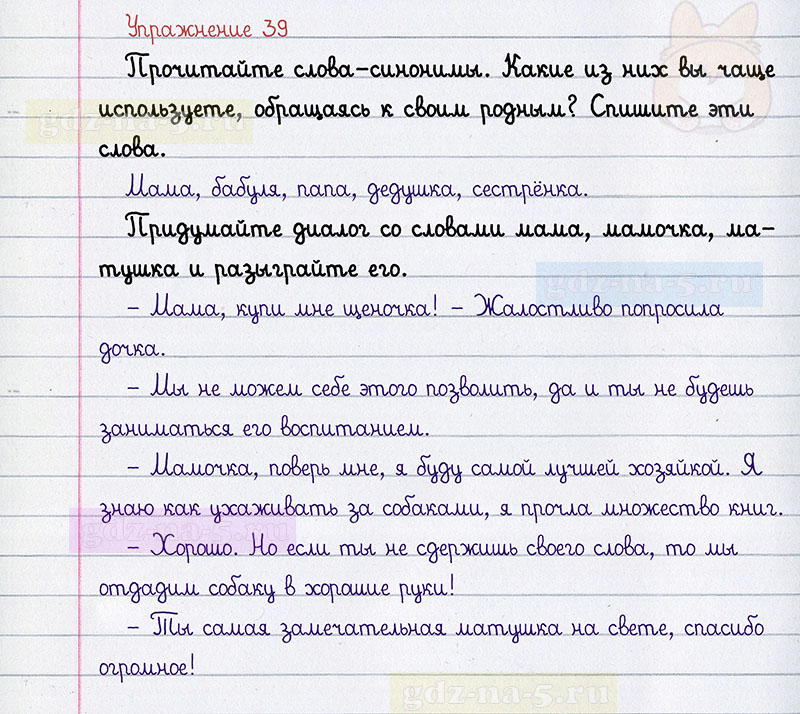 Упражнение 39
Прочитайте слова-синонимы. Какие из них вы чаще
используете, обращаясь к своим родным? Спишите эти
слова.
Мама, бабуля, папа, дедушка, сестрёнка.
Придумайте диалог со словами мама, мамочка, ма-
тушка и разыграйте его.
- Мама, купи мне щеночка! - Жалостливо попросила
дочка.
- Мы не можем себе этого позволить, да и ты не будешь
заниматься его воспитанием.
- Мамочка, поверь мне, я буду самой лучшей хозяйкой. Я
знаю как ухаживать за собаками, я прочла множество книг.
- Хорошо. Но если ты не сдержишь своего слова, то мы
отдадим собаку в хорошие руки!
- Ты самая замечательная матушка на свете, спасибо
огромное!
gdz-na-5.ru
gdz-na-5.ru
gdz-na-5.ru
gdz-na-5.ru